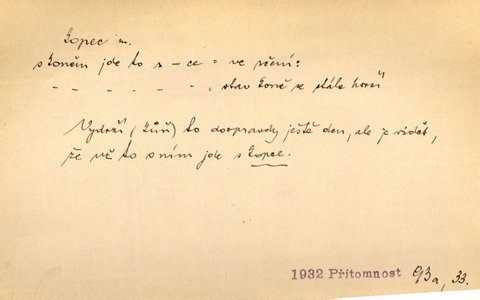 kopec m.
s koněm jde to s – ce = ve rčení:
– – – – – „ stav koně se stále horší
Vydrží (kůň) to doopravdy ještě den, ale je vidět,
že už to s ním jde s kopec.
1932 Přítomnost 93a, 33.